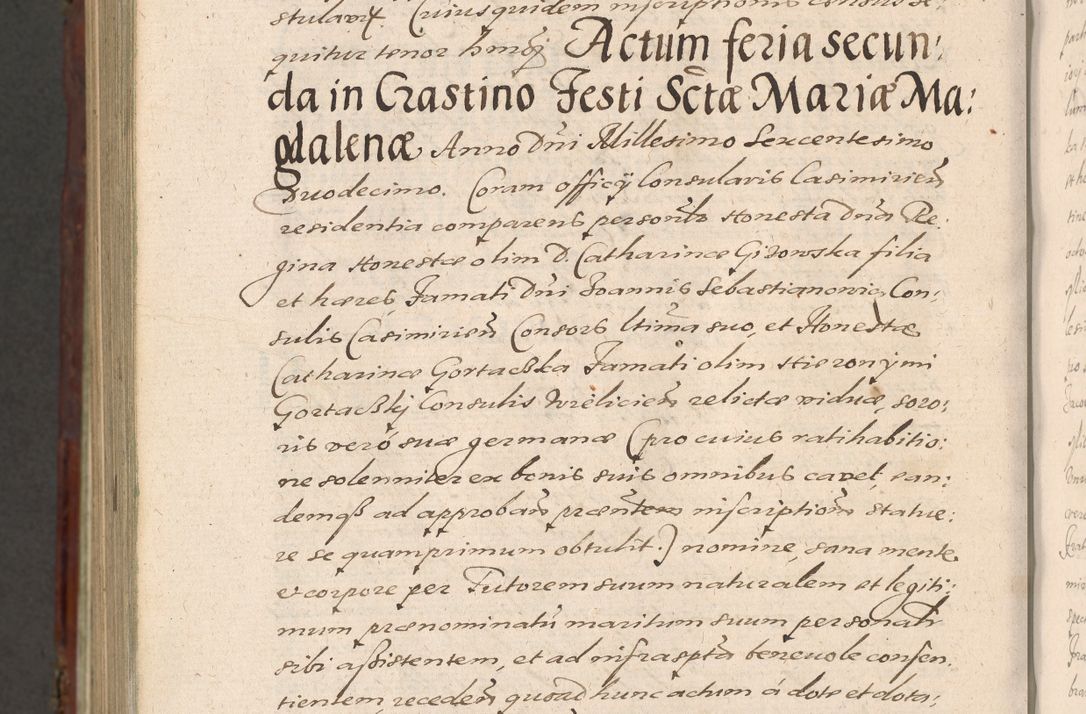 stularum. Cuius quidem inscriptionis consensus se,
quitur tenor hmõi Actum feria secun:
da in Crastino Festi Sctæ Mariæ Ma:
gdalenæ Anno Dni Millesimo Sexcentesimo
Duodecimo. Coram officij Consularis Casimirien
residentia comparens personlr Honesta Dna Re:
gina Honestæ olim D. Catharinæ Gizowska filia
et hæres, Famati Dni Joannis Sebastianowic, Con:
sulis Casimirien Consors ltima suo, et Honestæ
Catharinæ Gortachska Famati olim Hieronymi
Gortachskij Consulis Wielicien relictæ viduæ, soro:
ris vero suæ germanæ (pro cuius ratihabitio:
ne solenniter ex bonis suis omnibus cavet, ean:
demqß ad approban præntem inscription statue:
re se quamprimum obtulit.) nomine, sana mente
et corpore per Tutorem suum naturalem et legiti:
mum prænominatu maritum suum personalr
sibi aßistentem, et ad infrasptа benevole consen,
tientem, receden quoad hunc actum á dote et dota: